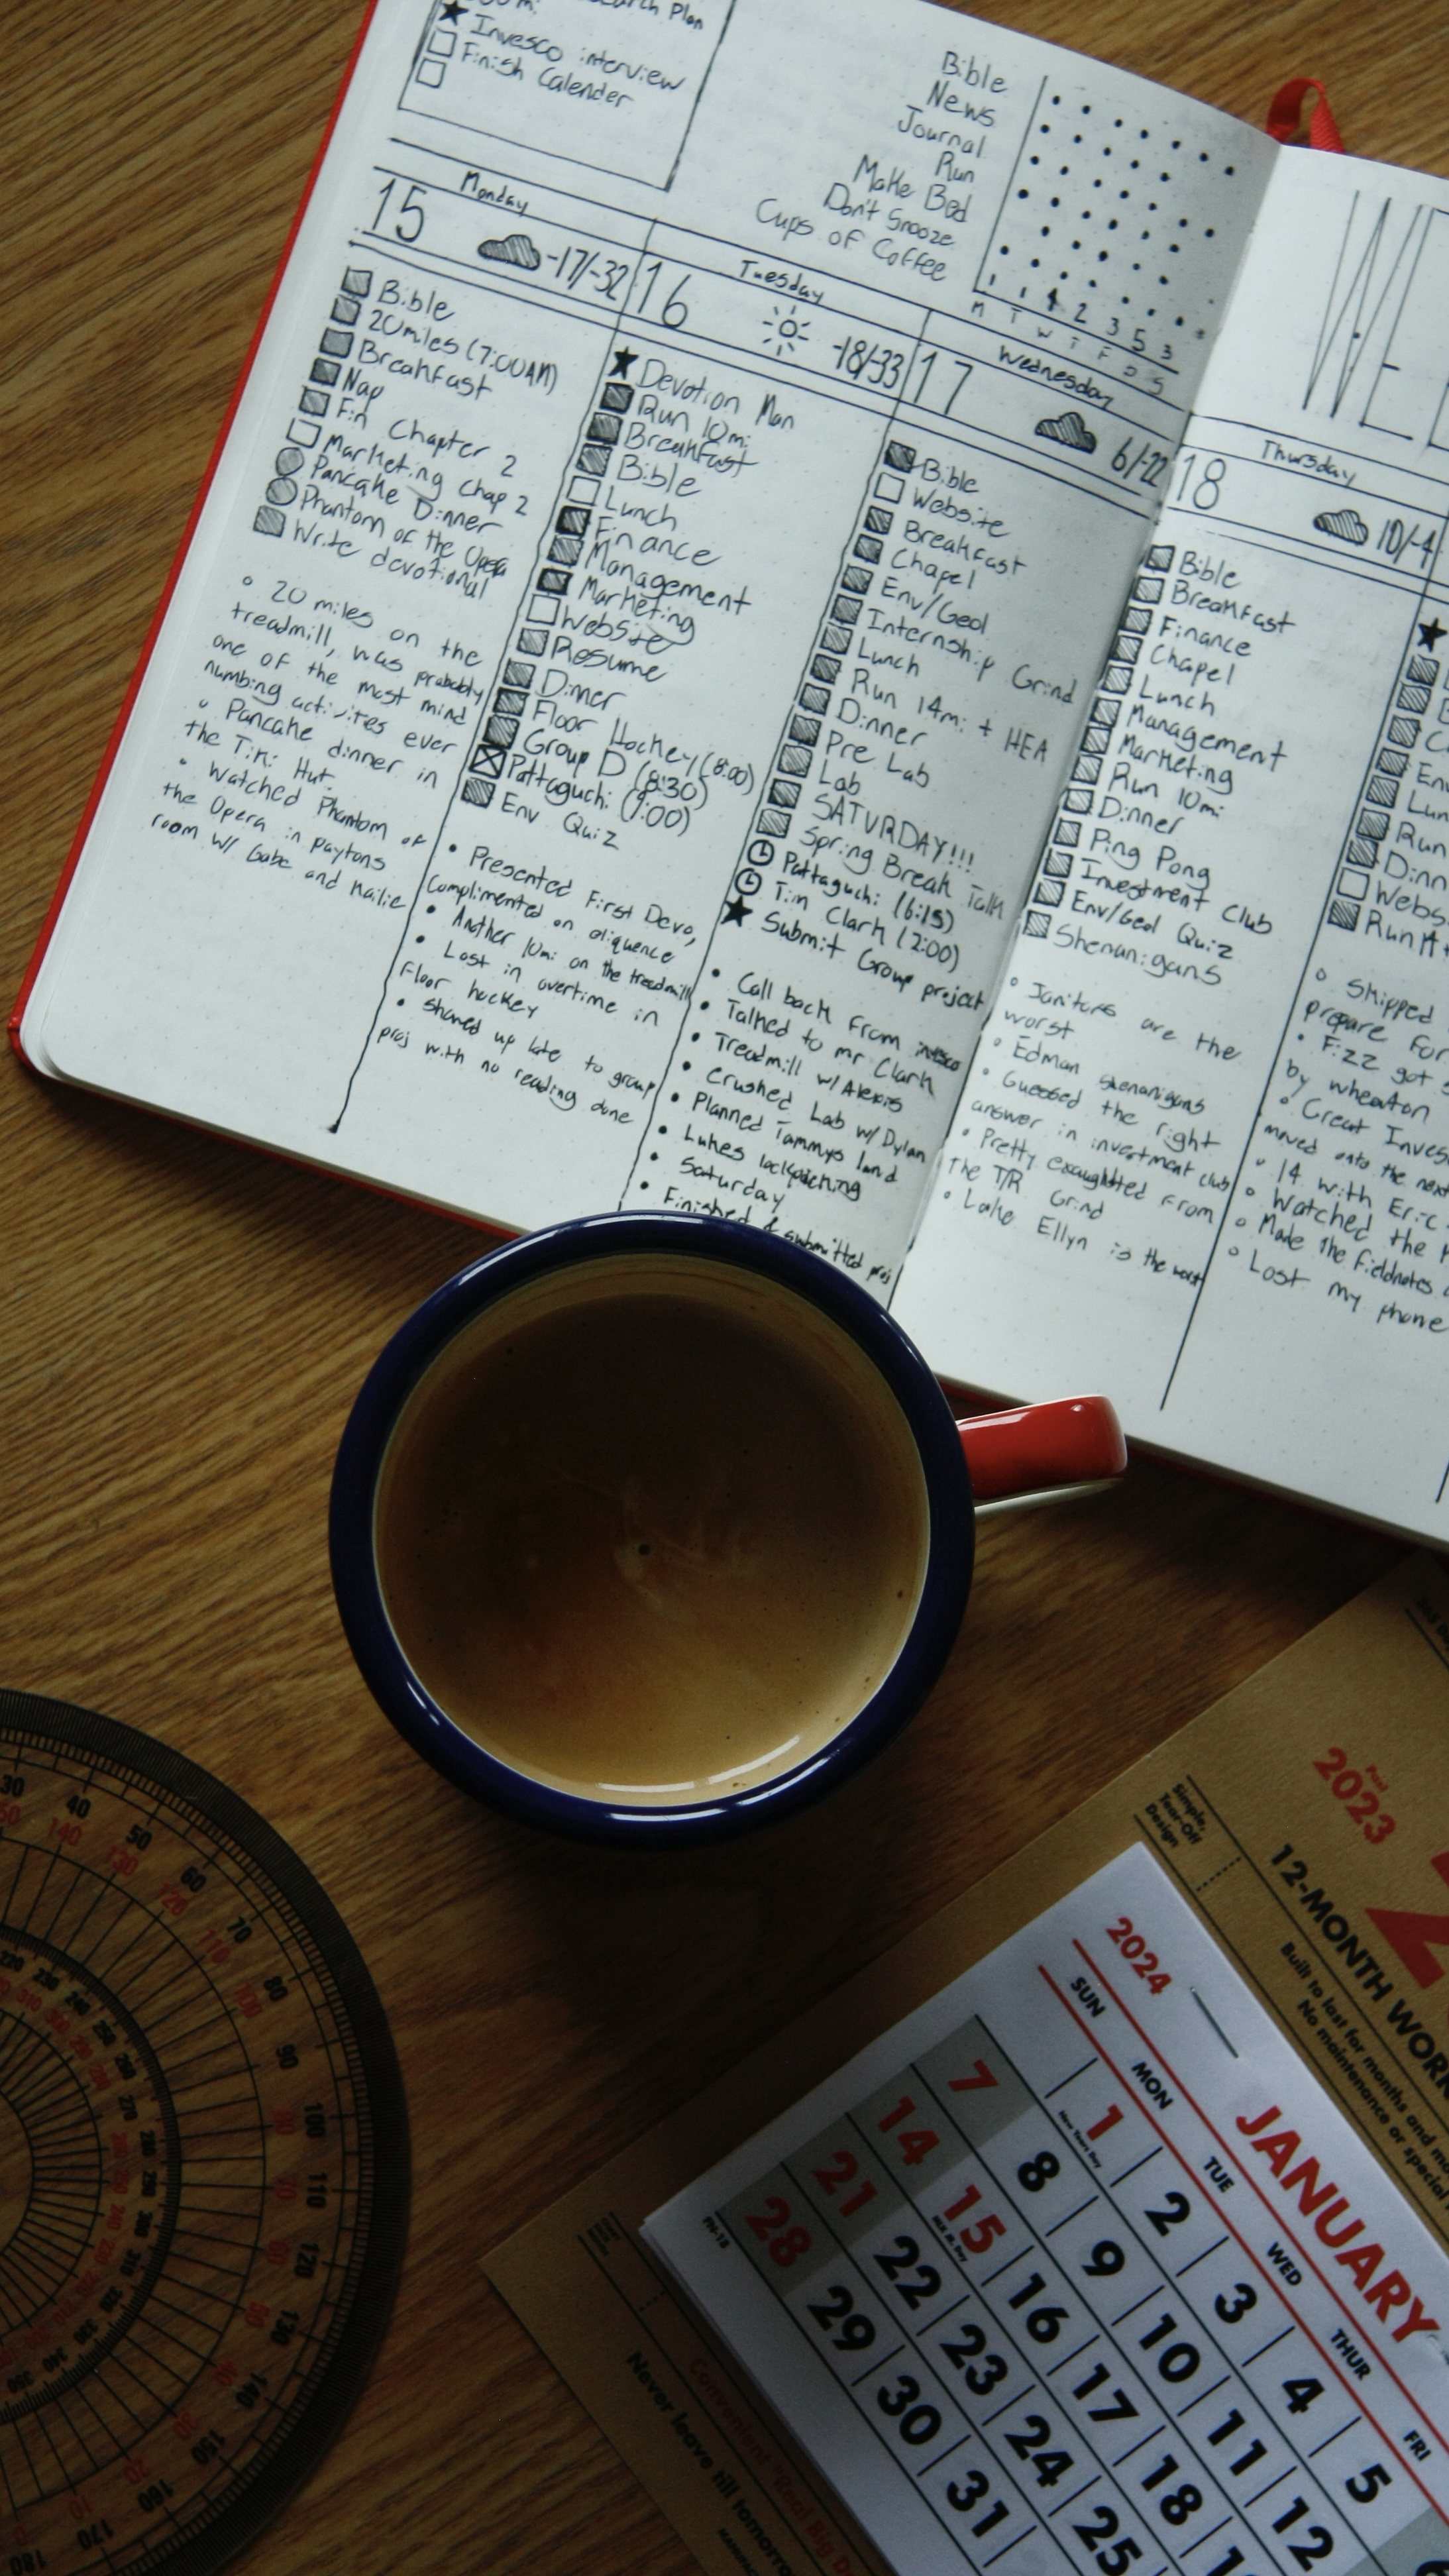 Research Plan
Invesco interview
Finish Calender
Bible
News
Journal
Run
Make Bed
Don't Snooze
Cups of Coffee
1 1 1 2 3 5 3
M T W T F S S
Monday
15 -17/-32
Bible
20miles (7:00AM)
Breakfast
Nap
Fin Chapter 2
Marketing Chap 2
Pancake Dinner
Phantom of the Opera
Write devotional
20 miles on the
treadmill, was probably
one of the most mind
numbing activities ever
Pancake dinner in
the Tiki Hut.
Watched Phantom of
the Opera in paytons
room w/ Gabe and Kailie
Tuesday
16 -18/-33
Devotion Man
Run 10mi
Breakfast
Bible
Lunch
Finance
Management
Marketing
Website
Resume
Dinner
Floor Hockey (8:00)
Group D (8:30)
Pattaguchi (9:00)
Env Quiz
Presented First Devo,
Complimented on eliquence
Another 10mi on the treadmill
Lost in overtime in
Floor hockey
Showed up late to group
proj with no reading done
Wednesday
17 6/-22
Bible
Website
Breakfast
Chapel
Env/Geol
Internship Grind
Lunch
Run 14mi + HEA
Dinner
Pre Lab
Lab
SATURDAY!!!
Spring Break Talk
Pattaguchi (6:15)
Tim Clark (2:00)
Submit Group project
Call back from invesco
Talked to mr Clark
Treadmill w/ Alexis
Crushed Lab w/ Dylan
Planned Tammys land
Lukes lockpicking
Saturday
Finished & submitted proj
Thursday
18 10/-4
Bible
Breakfast
Finance
Chapel
Lunch
Management
Marketing
Run 10mi
Dinner
Ping Pong
Investment Club
Env/Geol Quiz
Shenanigans
Janitors are the
worst
Edman shenanigans
Guessed the right
answer in investment club
Pretty exaughsted from
the T/R Grind
Lake Ellyn is the worst
Run
Webs
Run
Skipped
prepare for
Fizz got
by wheaton
Great Inves
moved onto the next
14 with Eric
Watched the
Made the fieldnotes
Lost my phone
30 40 50 60 70 80 90 100 110 120 130 140 150 160 170 180
Simple,
Tear-Off
Design
Past
2023
12-MONTH WORK
Built to last for months and mo
No maintenance or special
2024
JANUARY
SUN MON TUE WED THUR FRI
1 2 3 4 5
New Years Day
7 8 9 10 11 12
14 15 16 17 18
21 22 23 24 25
28 29 30 31
FN-18
Convenient "Real Big D
Never leave till tomorro